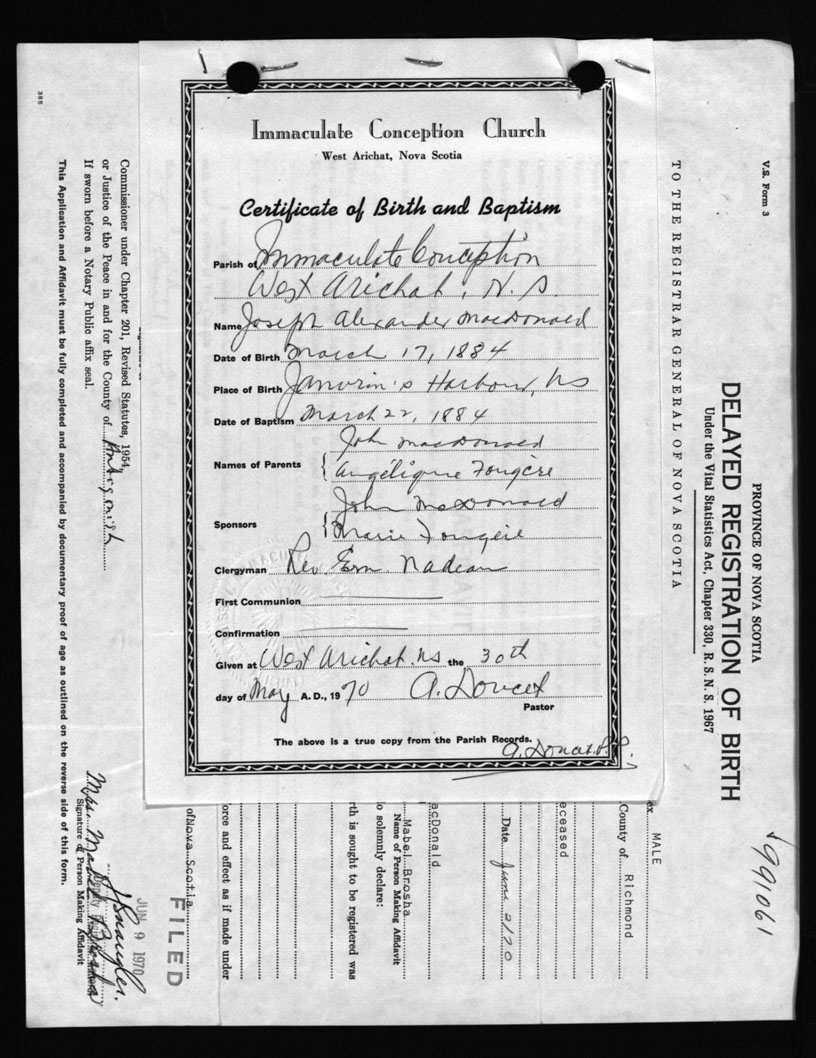 Immaculate Conception Church
West Arichat, Nova Scotia
Certificate of Birth and Baptism
Parish of Immaculate Conception
West Arichat, N.S.
Name Joseph Alexander MacDonald
Date of Birth March 17, 1884
Place of Birth Janvrin's Harbour, NS
Date of Baptism March 22, 1884
Names of Parents { John MacDonald
Angélique Fougère
Sponsors { John McDonald
Marie Fougère
Clergyman Rev. Ern. Nadeau
First Communion
Confirmation
Given at West Arichat, NS the 30th
day of May A. D., 1970 A. Doucet
Pastor
The above is a true copy from the Parish Records.
A. Doucet P.P.
V.S. Form 3
PROVINCE OF NOVA SCOTIA
DELAYED REGISTRATION OF BIRTH
Under the Vital Statistics Act, Chapter 330, R.S.N.S. 1967
TO THE REGISTRAR GENERAL OF NOVA SCOTIA
991061
ex MALE
County of Richmond
eceased
Date June 2/70
acDonald
Mabel Brosha
Name of Person Making Affidavit
o solemnly declare:
rth is sought to be registered was
orce and effect as if made under
of Nova Scotia
FILED
JUN 9 1970
Commissioner under Chapter 201, Revised Statutes, 1954,
or Justice of the Peace in and for the County of Antigonish
If sworn before a Notary Public affix seal.
Mrs. Mabel Brosha
Signature of Person Making Affidavit
This Application and Affidavit must be fully completed and accompanied by documentary proof of age as outlined on the reverse side of this form.
385